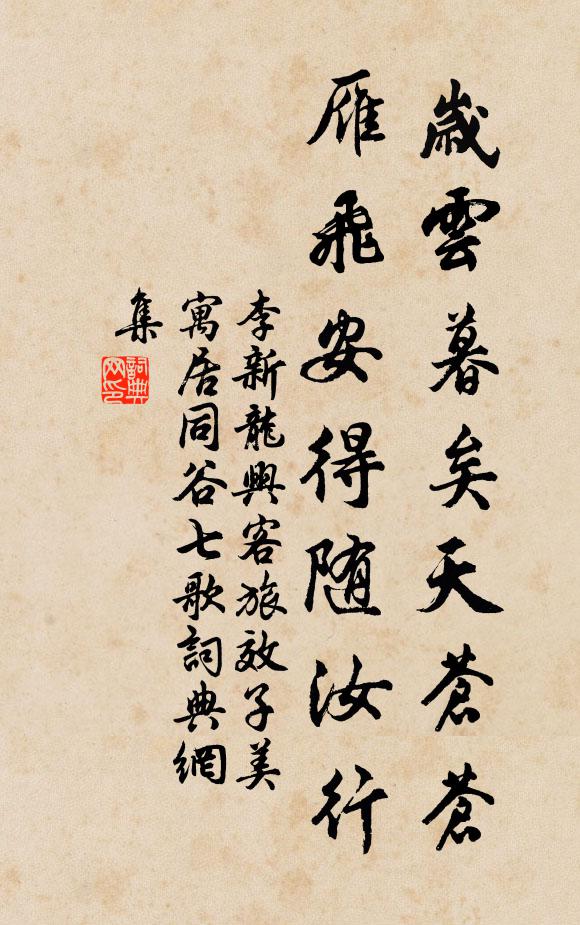 歲雲暮矣天蒼蒼
雁飛安得随汝行
李新龍興客旅效子美
寓居同谷七歌詞典網
集
詞典
网印